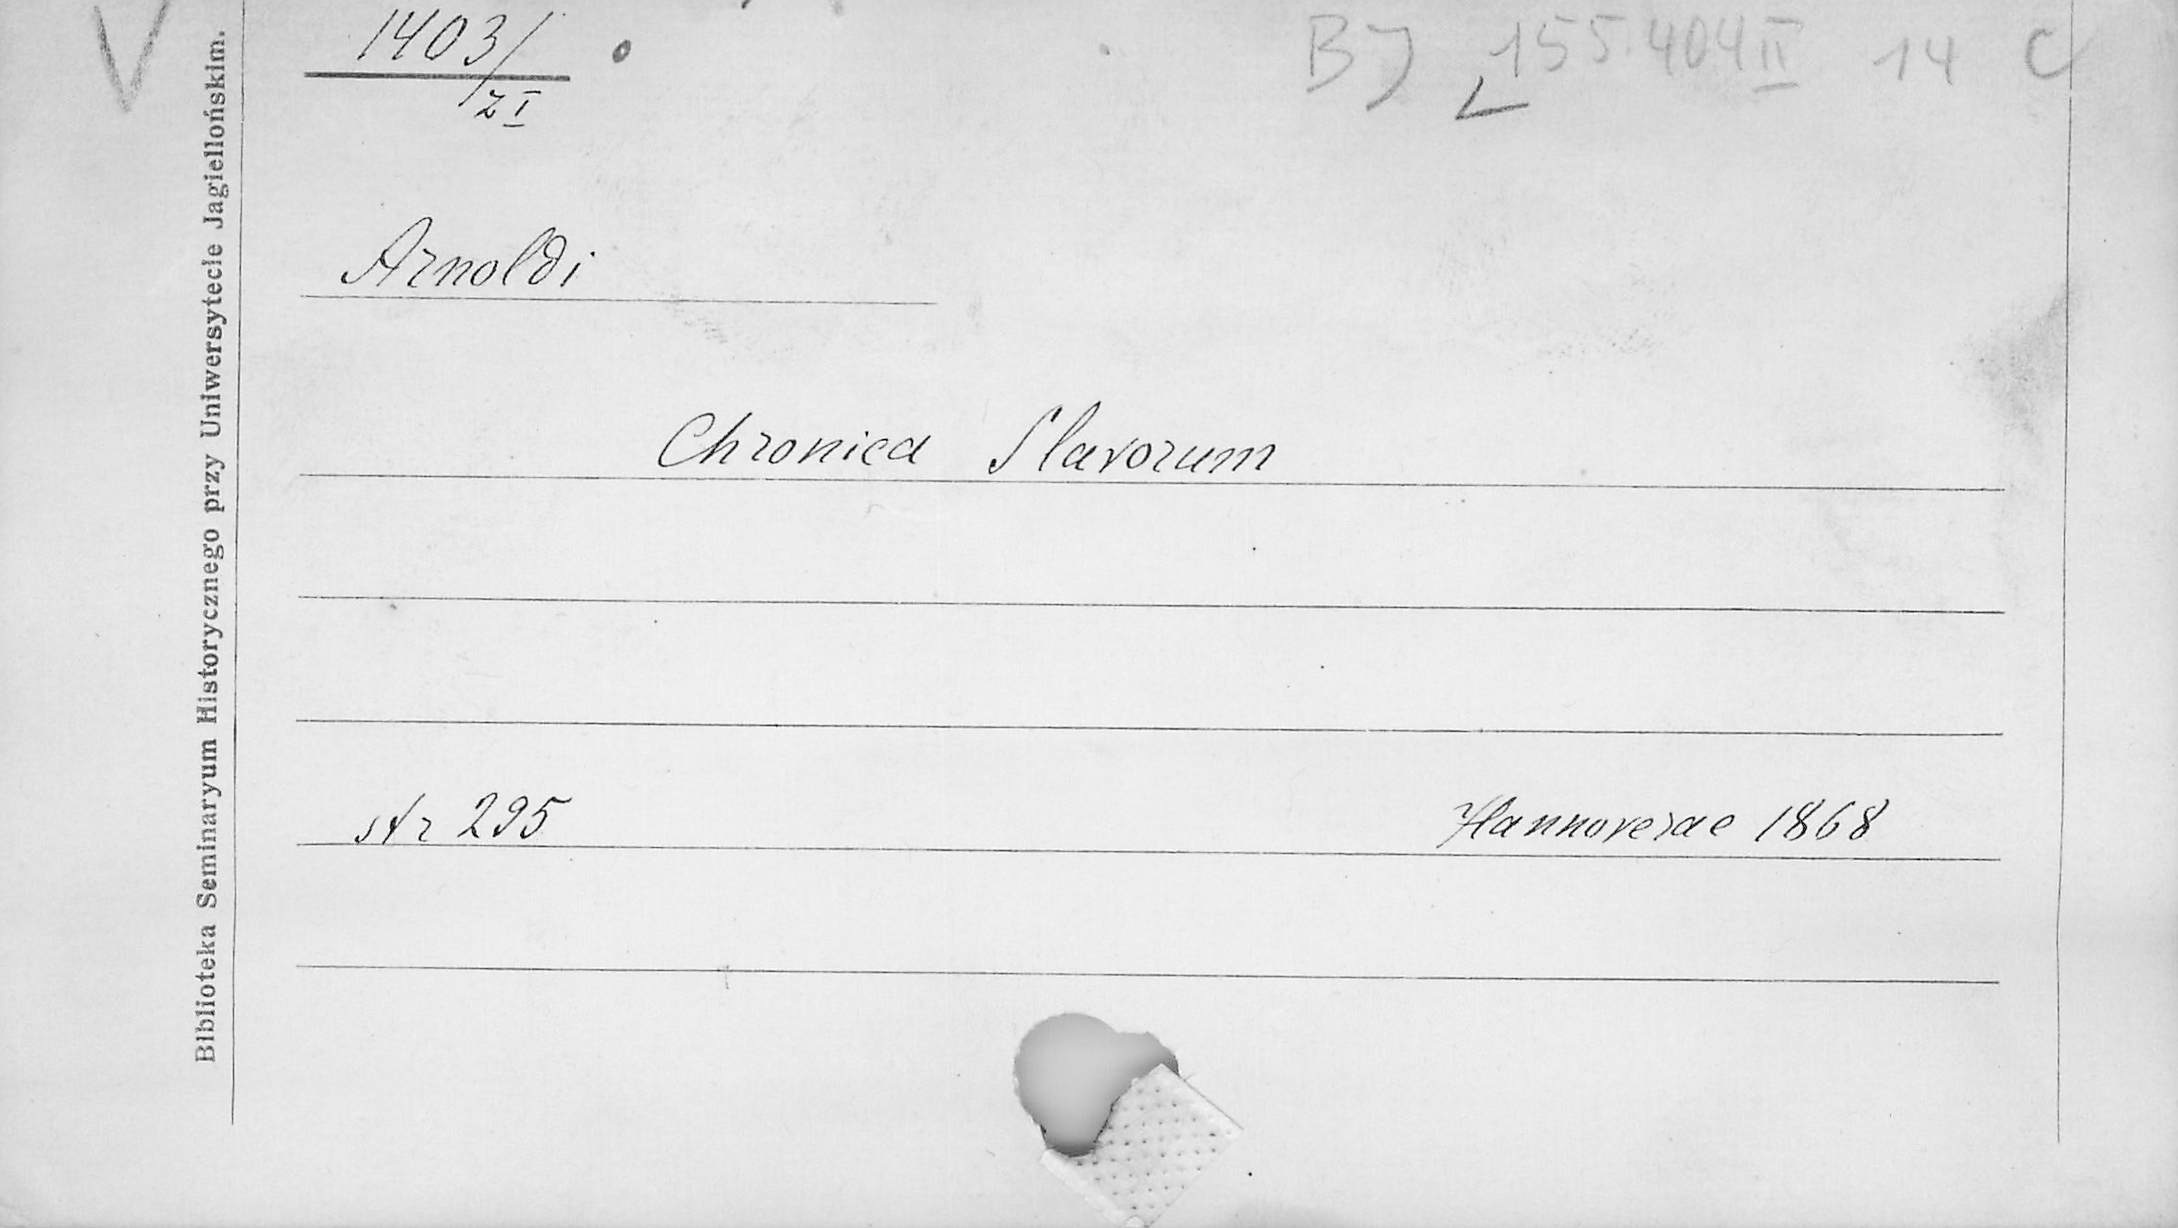 V
1403/zI
BJ 155.404 II 14 C
Biblioteka Seminaryum Historycznego przy Uniwersytecie Jagiellońskim.
Arnoldi
Chronica Slavorum
str 295 Hannoverae 1868